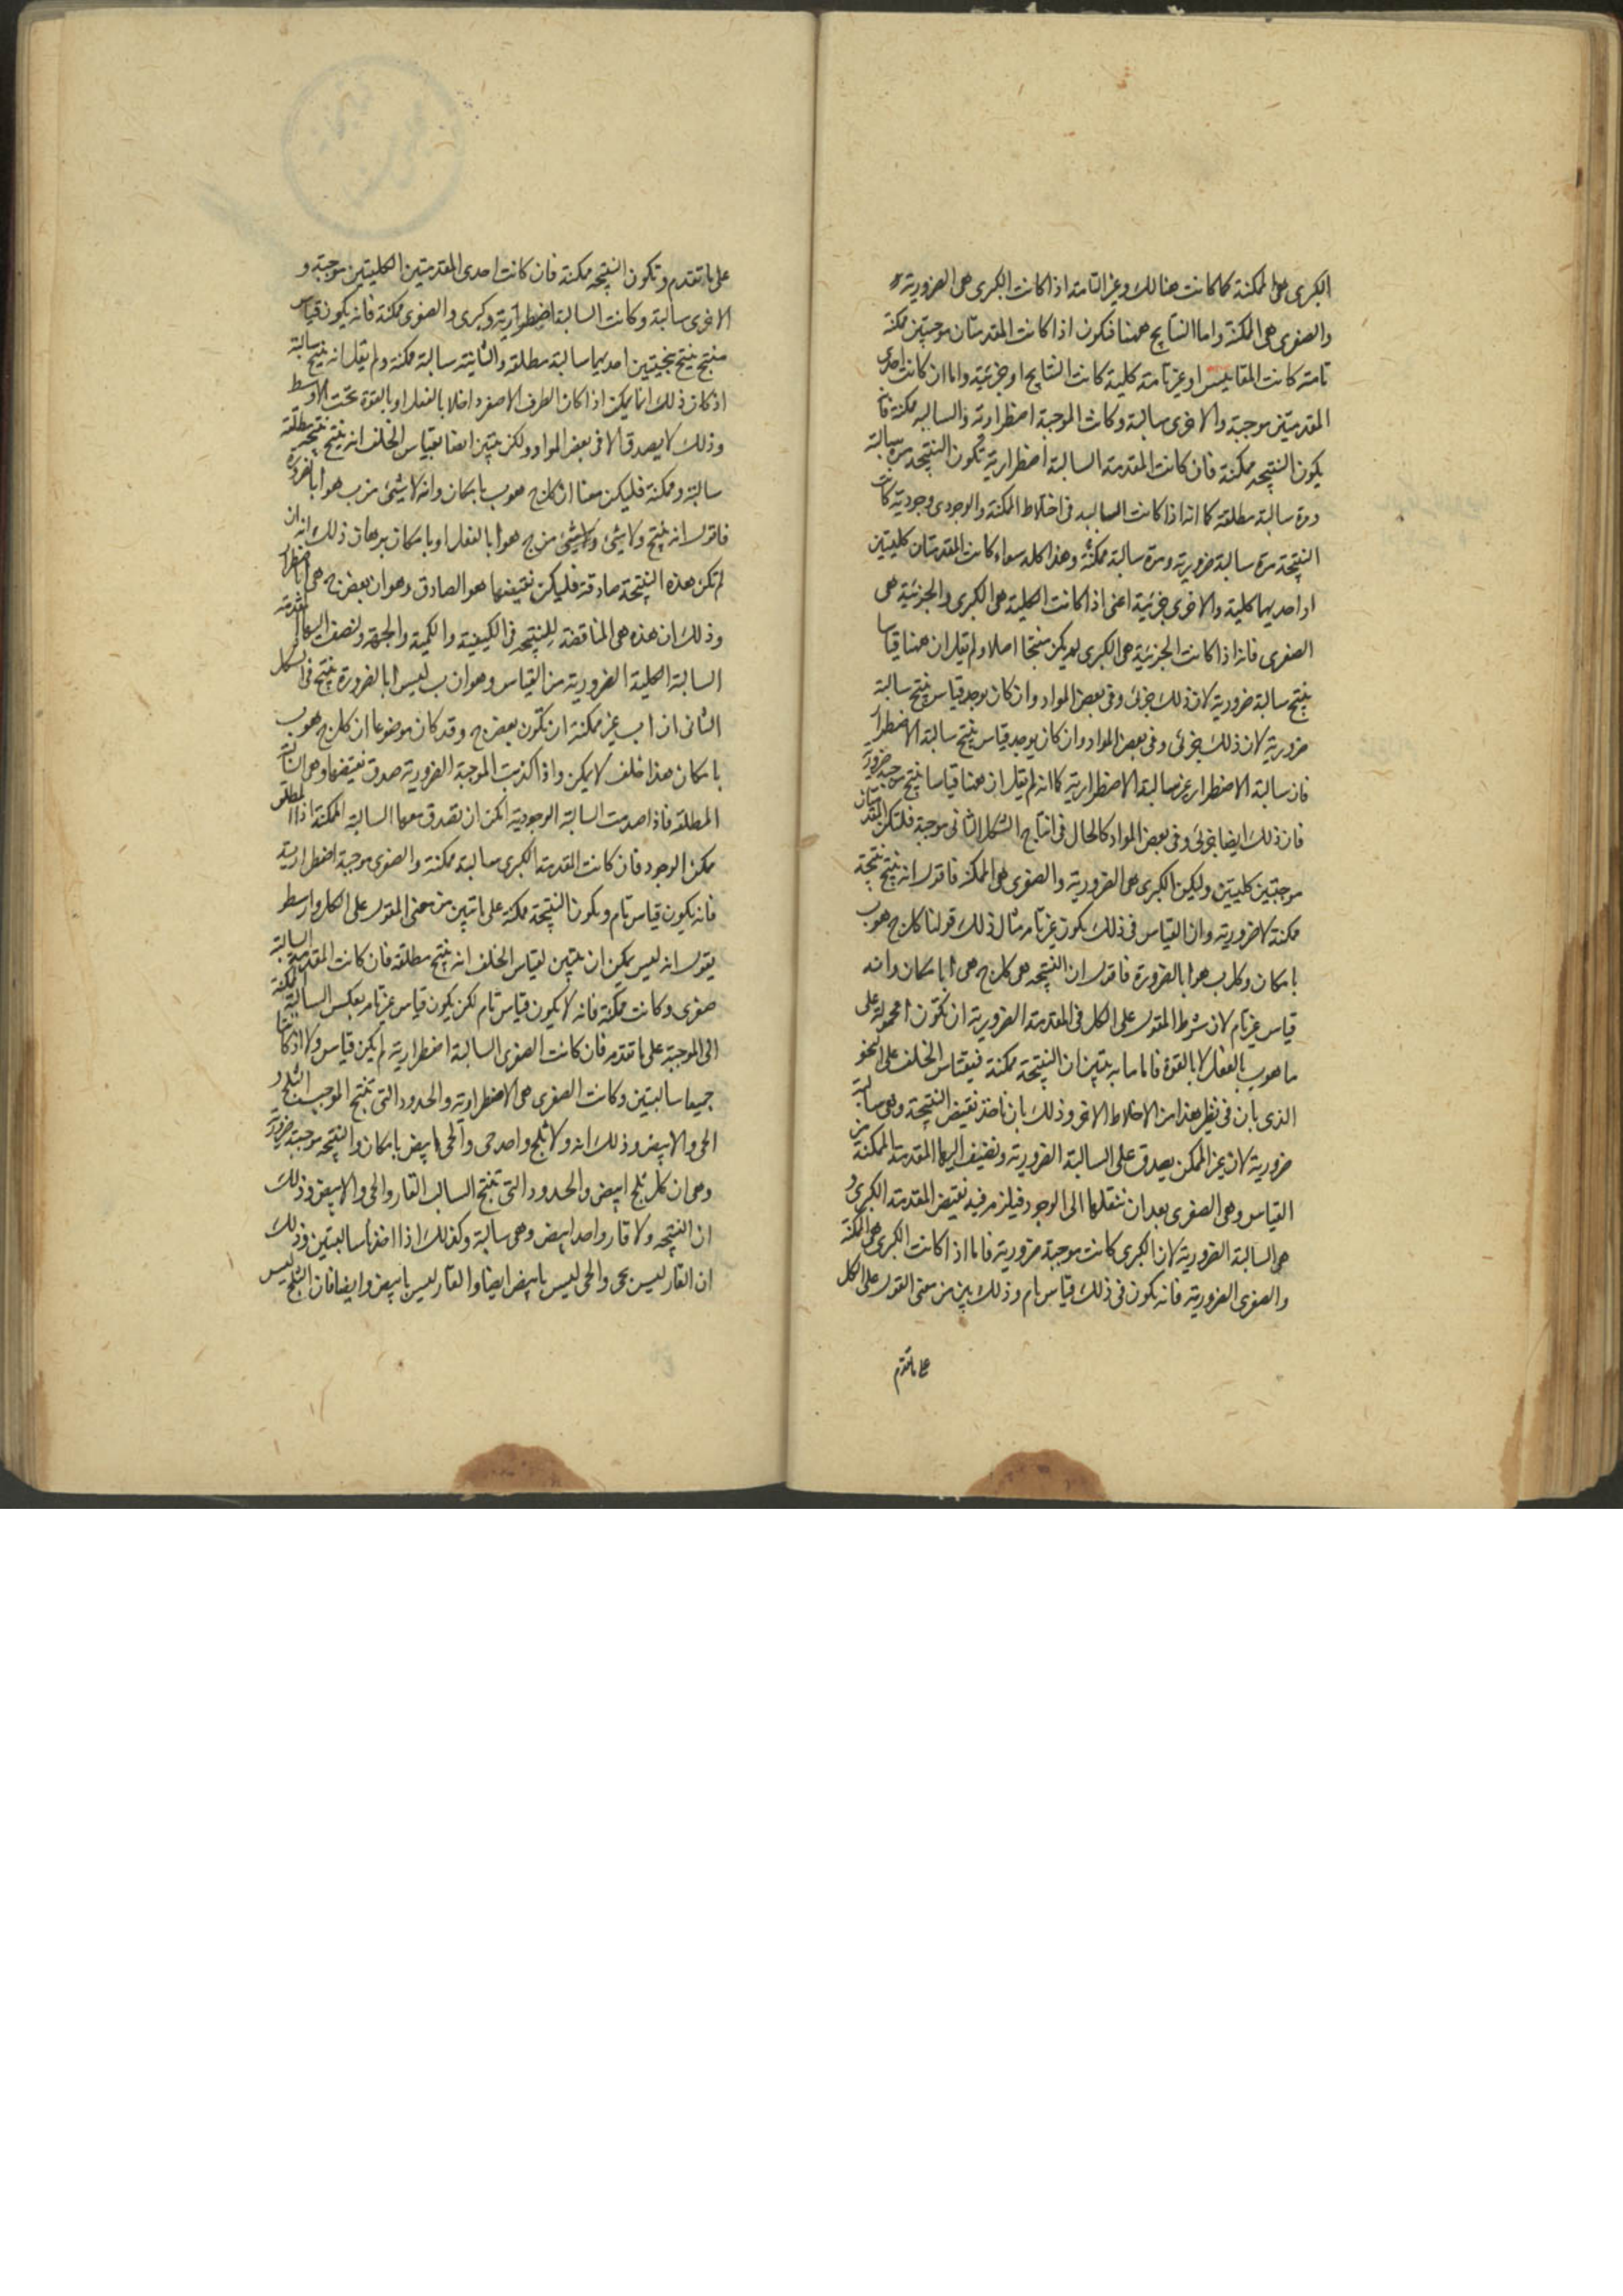 الكبرى هى الممكنة كما كانت هنالك وغير التامة اذا كانت الكبرى هى الضرورية
والصغرى هى الممكنة واما النتايج ههنا فتكون اذا كانت المقدمتان موجبتين ممكنة
تامة كانت المقاييس او غير تامة كلية كانت النتايج او جزئية واما ان كانت احدى
المقدمتين موجبة والاخرى سالبة وكانت الموجبة اضطرارية والسالبه ممكنة فانه
يكون النتيجه ممكنة فان كانت المقدمة السالبة اضطرارية تكون النتيجه مرة سالبة
ومرة سالبة مطلقة كما انه اذا كانت السالبه فى اختلاط الممكنة والوجودى وجودية كانت
النتيجة مرة سالبة ضرورية ومرة سالبة ممكنة وهذا كله سواء كانت المقدمتان كليتين
او احديهما كلية والاخرى جزئية اعنى اذا كانت الكلية هى الكبرى والجزئية هى
الصغرى فانه اذا كانت الجزئية هى الكبرى لم يكن منتجا اصلا ولم يقل ان ههنا قياسا
ينتج سالبة ضرورية لان ذلك جزئى وفى بعض المواد وان كان يوجد قياس ينتج سالبة
ضرورية لان ذلك جزئى وفى بعض المواد وان كان يوجد قياس ينتج سالبة الاضطرار
فان سالبة الاضطرار غير سالبة الاضطرارية كما انه لم يقل ان ههنا قياسا ينتج موجبة ضرورية
فان ذلك ايضا جزئى وفى بعض المواد كالحال فى انتاج الشكل الثانى موجبة فلتكن المقدمتان
موجبتين كليتين وليكن الكبرى هى الضرورية والصغرى هى الممكنة فاقول انه ينتج نتيجة
ممكنة لا ضرورية وان القياس فى ذلك يكون غير تام مثال ذلك قولنا كل ج هو ب
بامكان وكل ب هو ا بالضرورة فاقول ان النتيجه هى كل ج هى ا بامكان وانه
قياس غير تام لان شرط المقول على الكل فى المقدمة الضرورية ان تكون ا محمولة على
ما هو ب بالفعل لا بالقوة فاما ما به يتبين ان النتيجة ممكنة فبقياس الخلف على النحو
الذى بان فى نظير هذا من الاختلاط الاخر وذلك بان ناخذ نقيض النتيجة وهو سالبة
ضرورية لان غير الممكن يصدق على السالبة الضرورية ونضيف اليها المقدمة الممكنة من
القياس وهى الصغرى بعد ان ننقلها الى الوجود فيلزم فيه نقيض المقدمة الكبرى و
هى السالبة الضرورية لان الكبرى كانت موجبة ضرورية فاما اذا كانت الكبرى هى الممكنة
والصغرى الضرورية فانه يكون فى ذلك قياس تام وذلك بين من معنى المقول على الكل
على ما تقدم
على ما تقدم وتكون النتيجه ممكنة فان كانت احدى المقدمتين الكليتين موجبة و
الاخرى سالبة وكانت السالبة اضطرارية وكبرى والصغرى ممكنة فانه يكون قياس
منتج ينتج نتيجتين احديهما سالبة مطلقة والثانية سالبة ممكنة ولم يقل انه ينتج سالبة
اذ كان ذلك انما يمكن اذا كان الطرف الاصغر داخلا بالفعل او بالقوة تحت الاوسط
وذلك لا يصدق الا فى بعض المواد ولكن يتبين ايضا بقياس الخلف انه ينتج نتيجة مطلقة
سالبة وممكنة فليكن معنا ان كل ج هو ب بامكان وانه لا شىء من ب هو ا بالضرورة
فاقول انه ينتج ولا شىء ولا شىء من ج هو ا بالفعل او بامكان برهان ذلك انه ان
لم تكن هذه النتيجة صادقة فليكن نقيضها هو الصادق وهو ان بعض ج هى ا باضطرار
وذلك ان هذه هى المناقضة للنتيجه فى الكيفية والكمية والجهة ونضف اليها المقدمة
السالبة الكلية الضرورية من القياس وهو ان ب ليس ا بالضرورة ينتج فى الشكل
الثانى ان ا ب غير ممكنة ان تكون بعض ج وقد كان موضوعا ان كل ج هو ب
بامكان هذا خلف لا يمكن واذا كذبت الموجبة الضرورية صدق نقيضها وهى السالبة
المطلقة فاذا صدقت السالبة الوجودية امكن ان تصدق معها السالبة الممكنة اذ المطلق
ممكن الوجود فان كانت المقدمة الكبرى سالبة ممكنة والصغرى موجبة اضطرارية
فانه يكون قياس تام ويكون النتيجة ممكنة على ما تبين من معنى المقول على الكل وارسطو
يقول انه ليس يمكن ان يتبين بقياس الخلف انه ينتج مطلقة فان كانت المقدمة السالبة
صغرى وكانت ممكنة فانه لا يكون قياس تام لكن يكون قياس غير تام بعكس السالبة الممكنة
الى الموجبة على ما تقدم فان كانت الصغرى السالبة اضطرارية لم يكن قياس ولا اذا كانتا
جميعا سالبتين وكانت الصغرى هى الاضطرارية والحدود التى تنتج الموجب الثلج و
الحى والابيض وذلك انه ولا ثلج واحد حى والحى ابيض بامكان والنتيجه موجبة ضرورية
وهى ان كل ثلج ابيض والحدود التى تنتج السالب القار والحى والابيض وذلك
ان النتيجه ولا قار واحد ابيض وهى سالبة وكذلك اذا اخذنا سالبتين وذلك
ان القار ليس بحى والحى ليس بابيض ايضا والقار ليس بابيض وايضا فان الثلج ليس